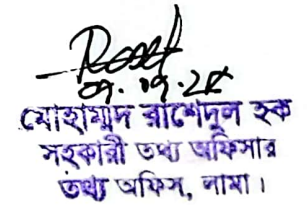 ০৭.০৭.২৫
মোহাম্মদ রাশেদুল হক
সহকারী তথ্য অফিসার
তথ্য অফিস, লামা।